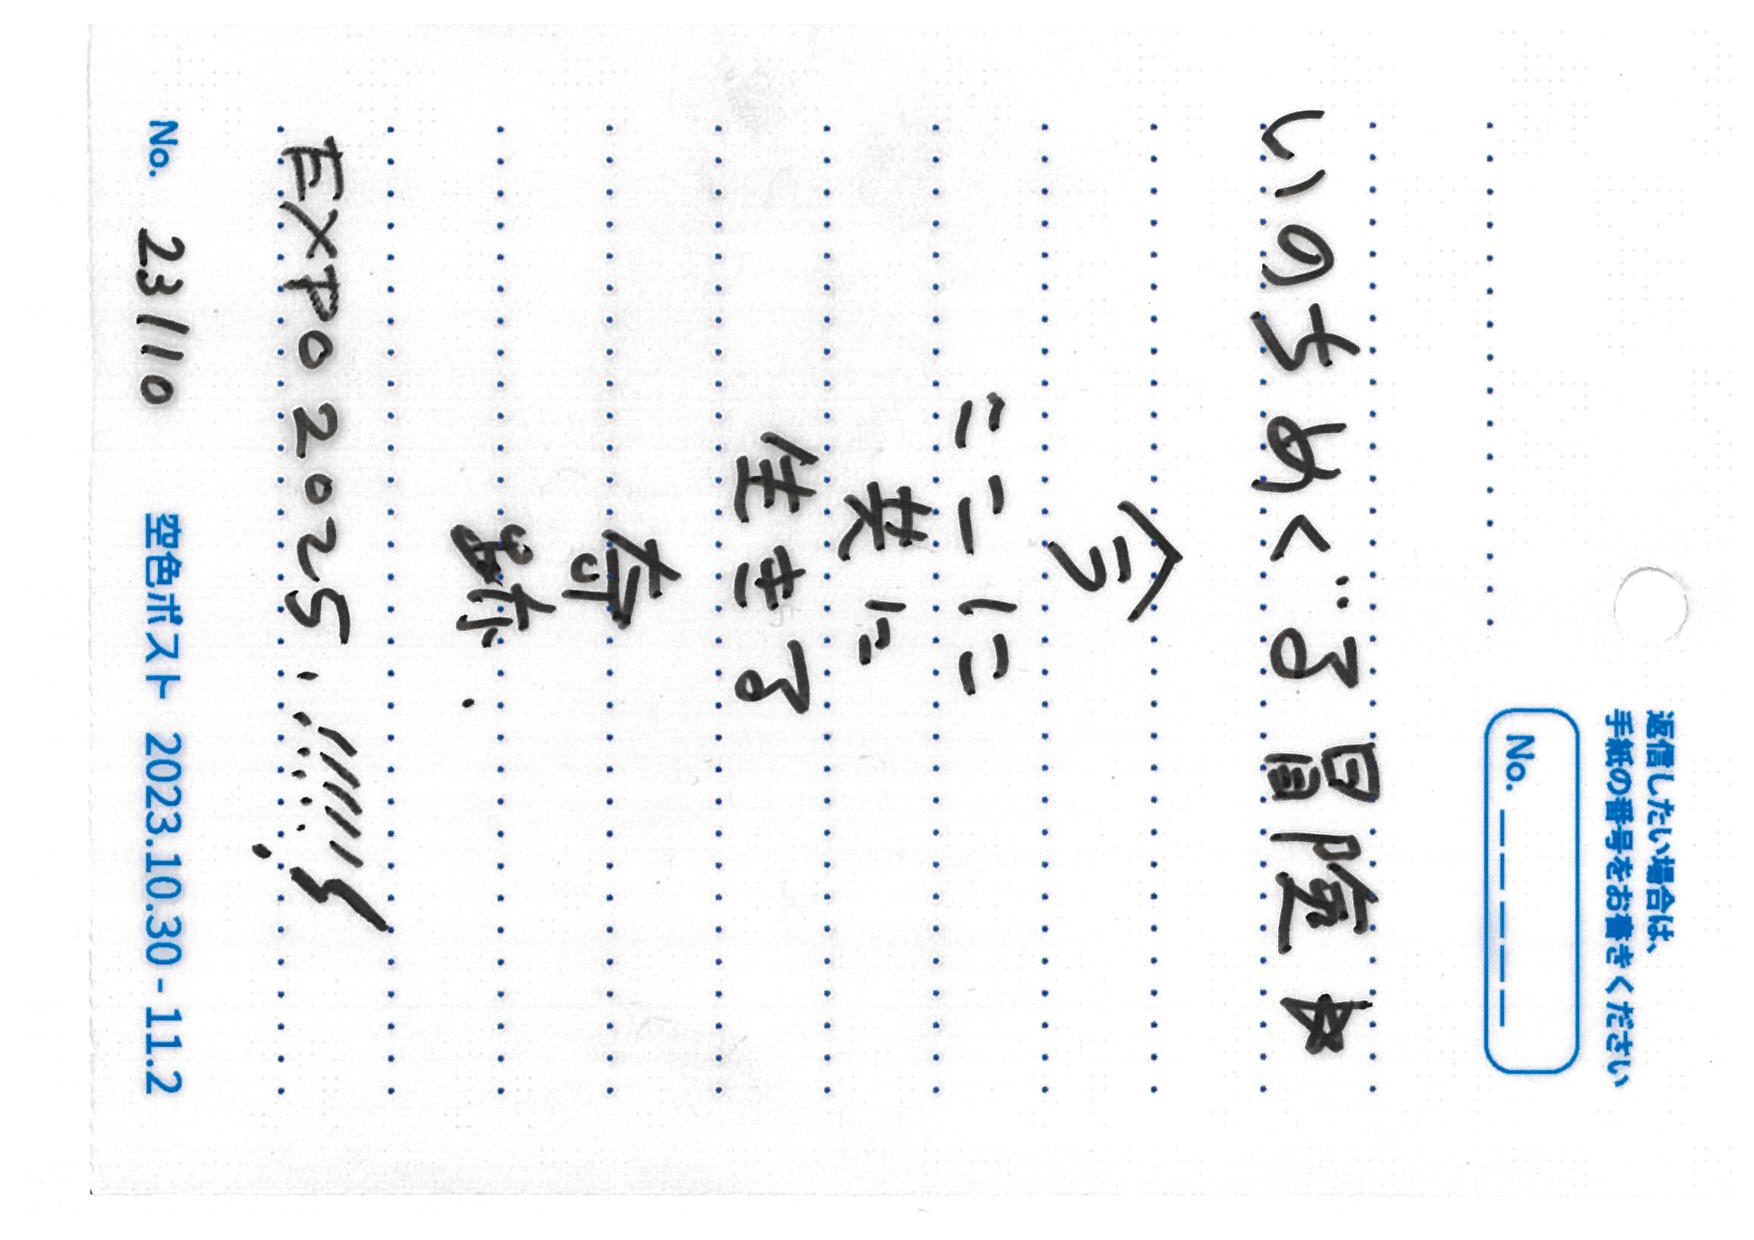 返信したい場合は、
手紙の番号をお書きください
No. _ _ _ _ _
いのちめぐる冒険☆
今
ここに
共に
生きる
奇
跡.
EXPO2025.!!!!!!
No. 23110 空色ポスト 2023.10.30 - 11.2